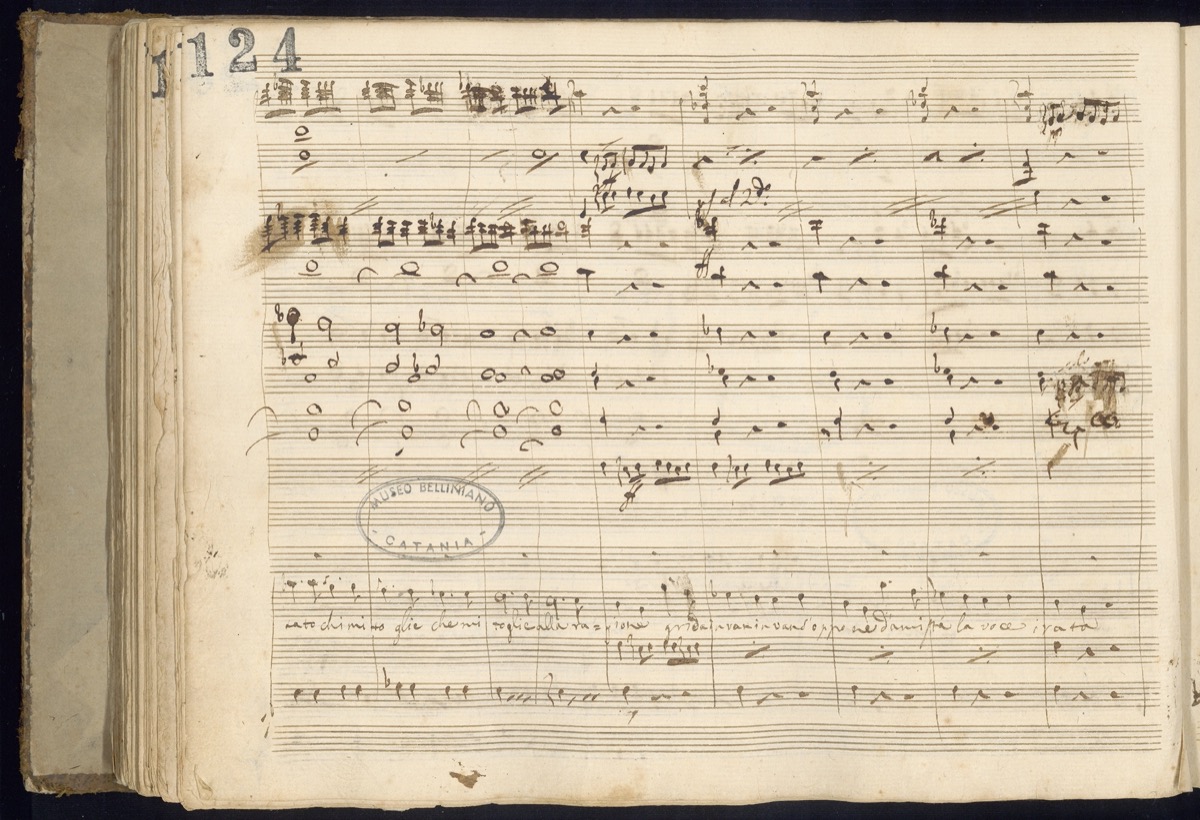 124
ff
MUSEO BELLINIANO
- CATANIA -
ff
chi mi to glie che mi toglie alla ra=gione grida invan invan oppone d'amistà la voce irata